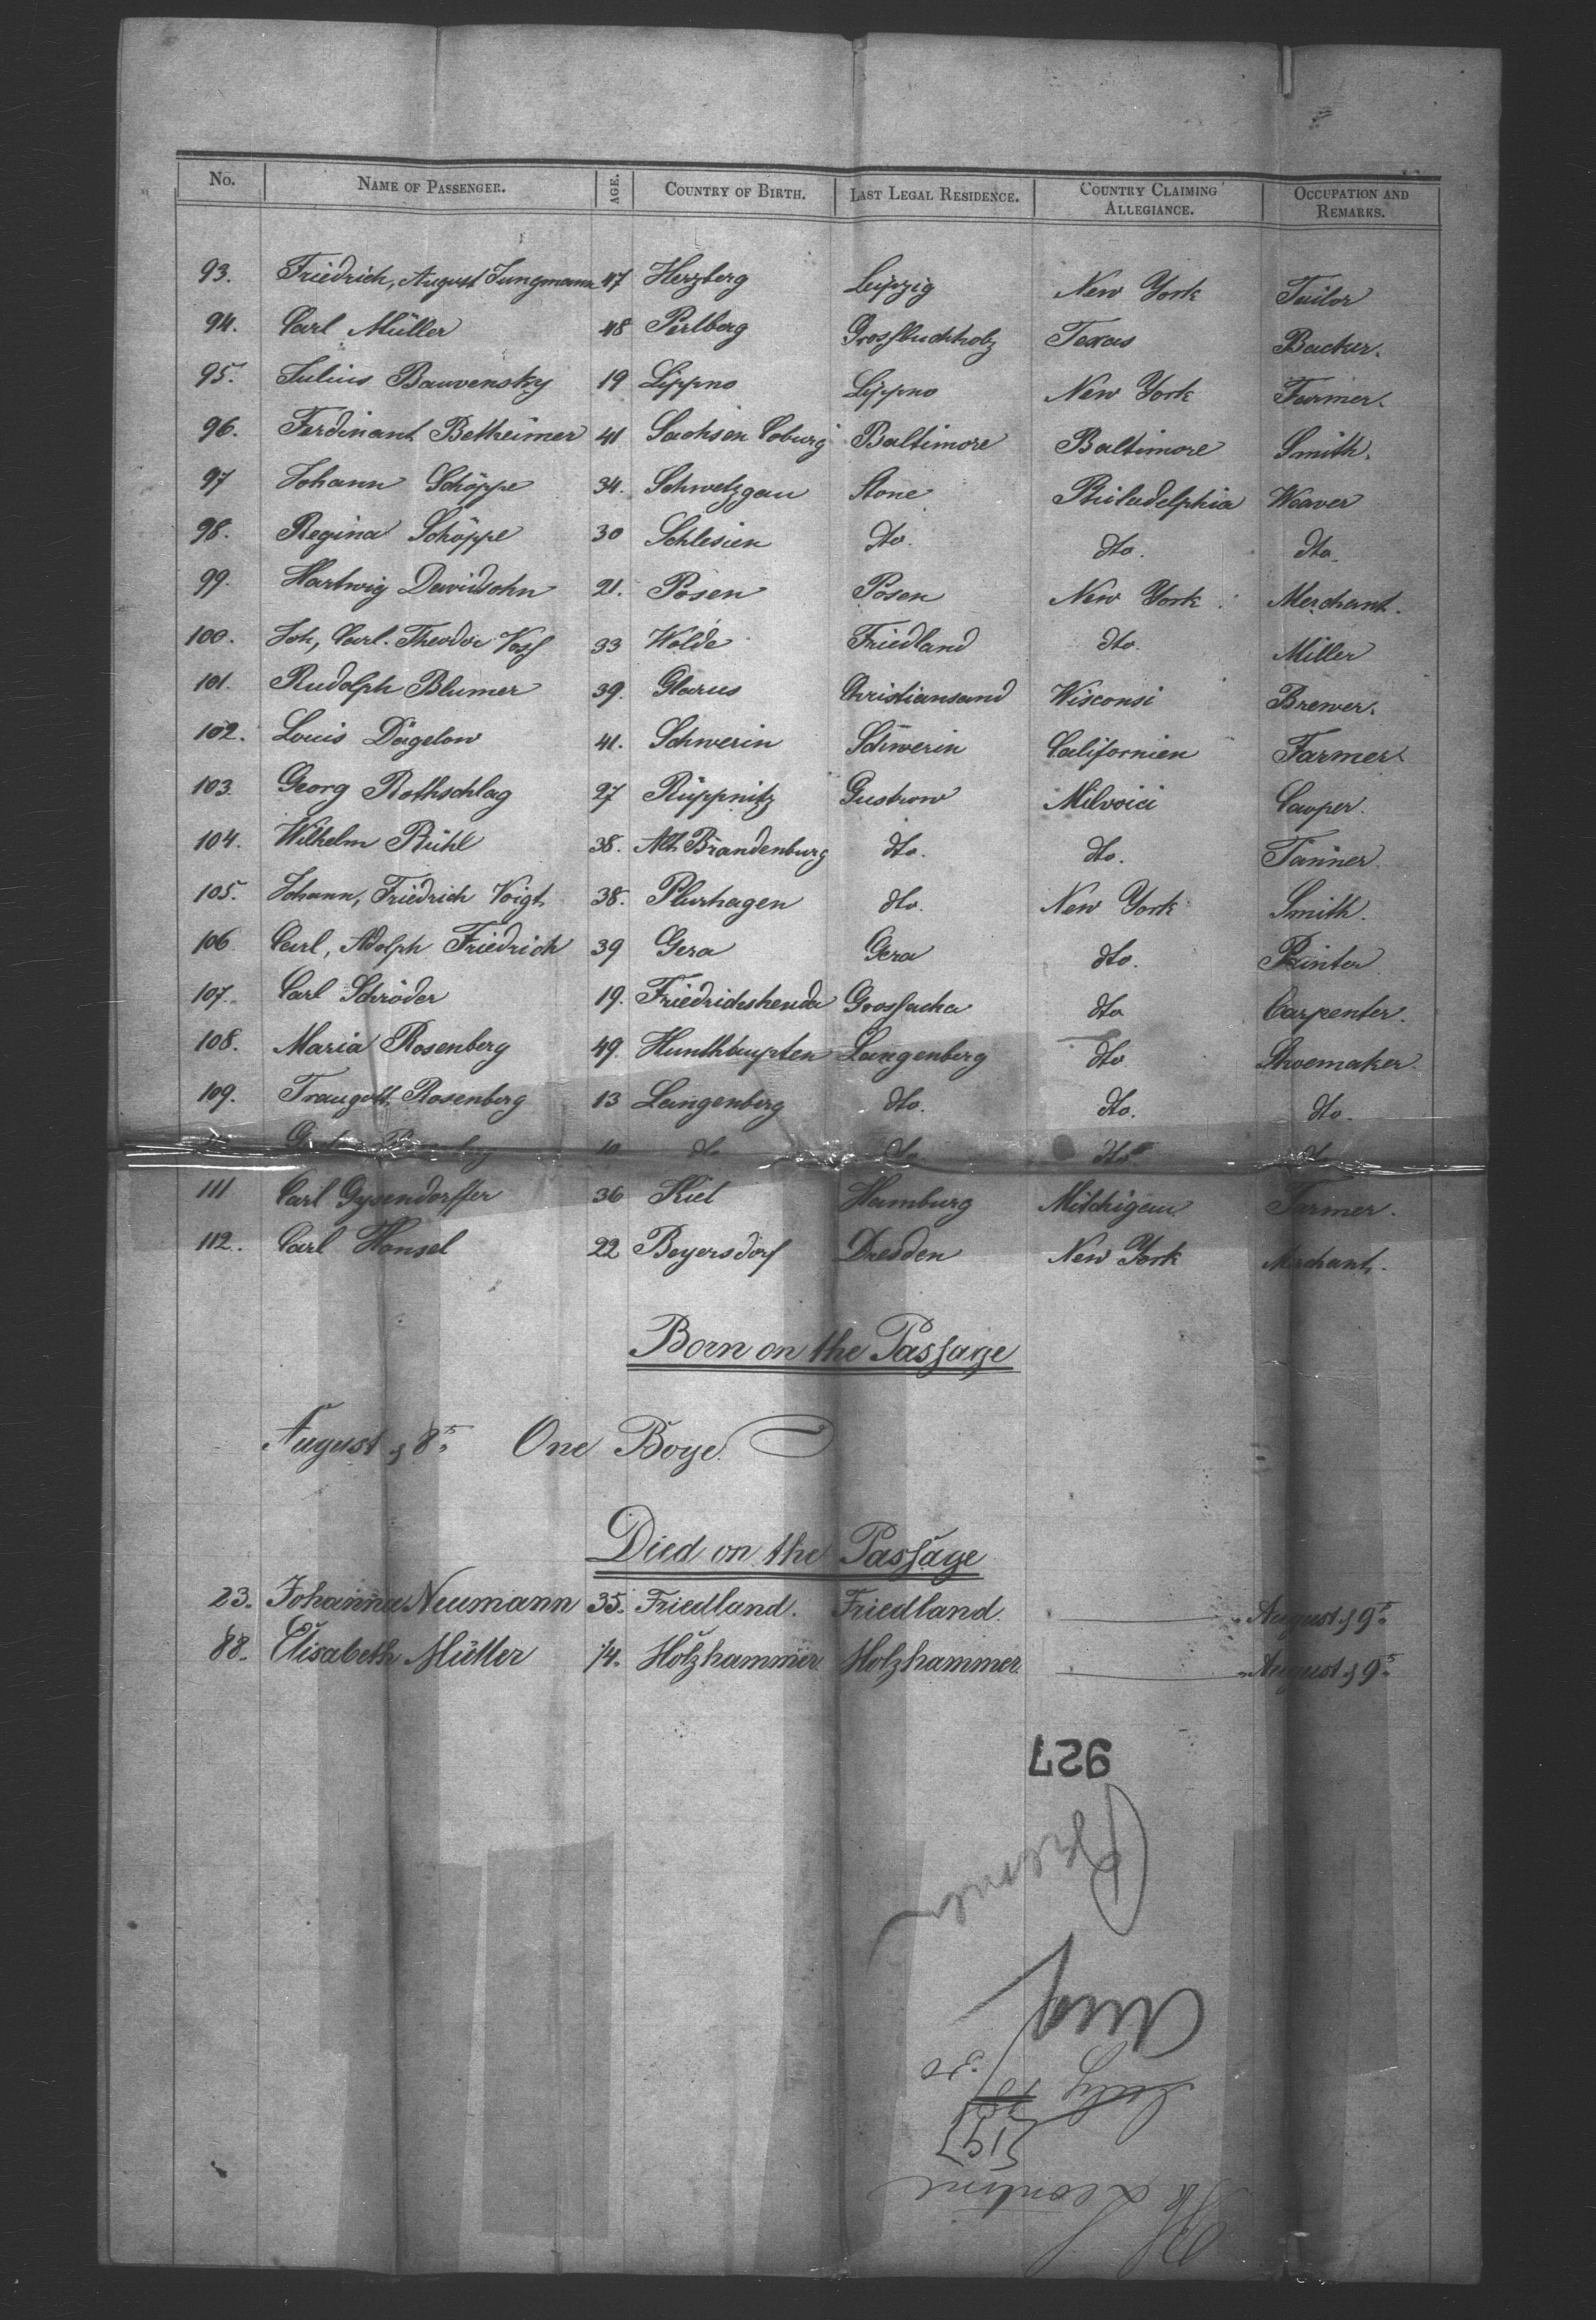 No. NAME OF PASSENGER. AGE. COUNTRY OF BIRTH. LAST LEGAL RESIDENCE. COUNTRY CLAIMING ALLEGIANCE. OCCUPATION AND REMARKS.
93. Friedrich, August Jungmann 47 Herzberg Leipzig New York Tailor
94. Carl Müller 48 Perlberg Grossbuchholz Texas Backer.
95. Julius Bauvensky 19 Lippno Lippno New York Farmer.
96. Ferdinant Betheimer 41 Sachsen Coburg Baltimore Baltimore Smith.
97 Johann Schöppe 34. Schwetzgau Stone Philadelphia Weaver
98. Regina Schöppe 30 Schlesien dto. dto. dto.
99. Hartwig Davidsohn 21. Posen Posen New York Merchant.
100. Joh, Carl. Theodor Voss 33 Wolde Friedland dto. Miller
101. Rudolph Blumer 39. Glarus Christiansand Wisconsi Brewer.
102. Louis Dägelow 41. Schwerin Schwerin Californien Farmer
103. Georg Rothschlag 27 Rüppnitz Gustrow Milvoici Cooper.
104. Wilhelm Rühl 38. Alt Brandenburg dto. dto. Tanner
105. Johann, Friedrich Voigt 38. Plurhagen dto. New York Smith.
106 Carl, Adolph Friedrich 39 Gera Gera dto. Painter
107. Carl Schröder 19. Grossacha dto Carpenter.
108. Maria Rosenberg 49. Langenberg dto Shoemaker
109. Traugott Rosenberg 13 Langenberg dto. dto. dto.
10 dto
111 Carl Gysendorffer 36 Kiel Hamburg Mitchigan Farmer.
112. Carl Honsel 22 Beyersdorf Dresden New York Merchant.
Born on the Passage
August 8th One Boye
Died on the Passage
23. Johanna Neumann 35. Friedland. Friedland. August 9th
88. Elisabeth Müller 1/4. Holzhammer Holzhammer. August 9th
927
Aug